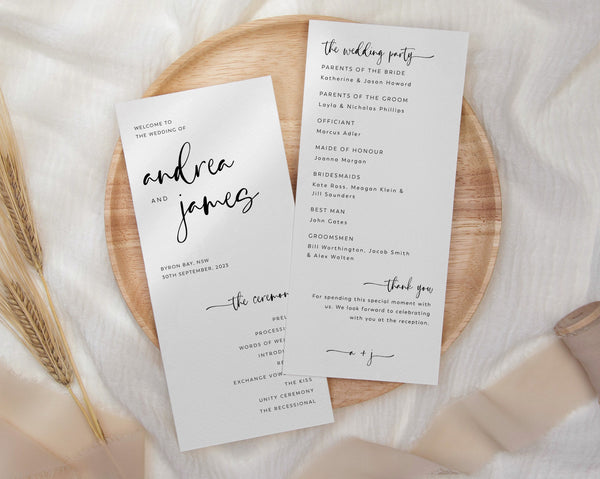 WELCOME TO
THE WEDDING OF
andrea
AND
james
BYRON BAY, NSW
30TH SEPTEMBER, 2023
the
PROCESSI
WORDS OF WE
EXCHANGE VOW
THE KISS
UNITY CEREMONY
THE RECESSIONAL
the wedding party
PARENTS OF THE BRIDE
Katherine & Jason Howard
PARENTS OF THE GROOM
Layla & Nicholas Phillips
OFFICIANT
Marcus Adler
MAIDE OF HONOUR
Joanna Morgan
BRIDESMAIDS
Kate Ross, Meagan Klein &
Jill Saunders
BEST MAN
John Gates
GROOMSMEN
Bill Worthington, Jacob Smith
& Alex Walten
thank you,
For spending this special moment with
us. We look forward to celebrating
with you at the reception.
a + j